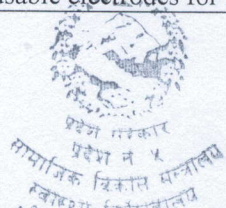 electrodes for
प्रदेश सरकार
प्रदेश नं ५
सामाजिक विकास मन्त्रालय
स्वास्थ्य